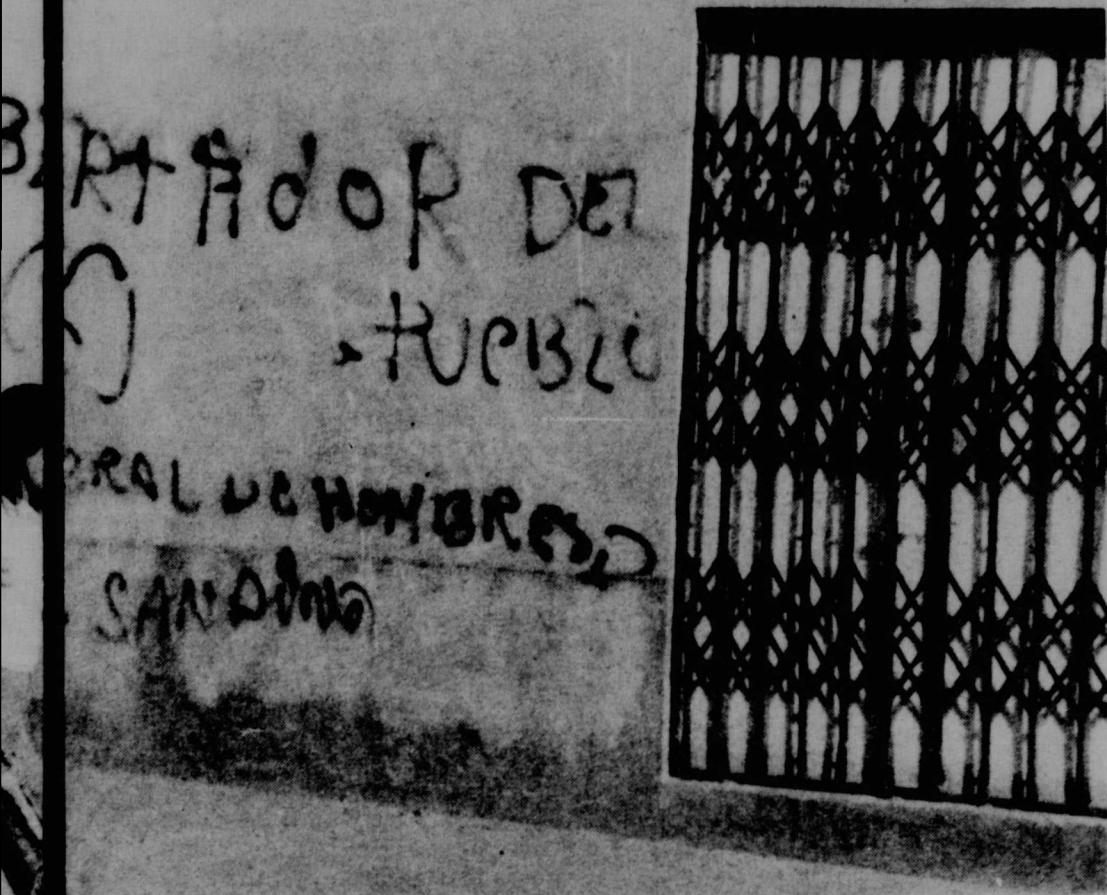 BERTADOR DEL
PUEBLO
ERAL DE HOMBRES D
SANDINO